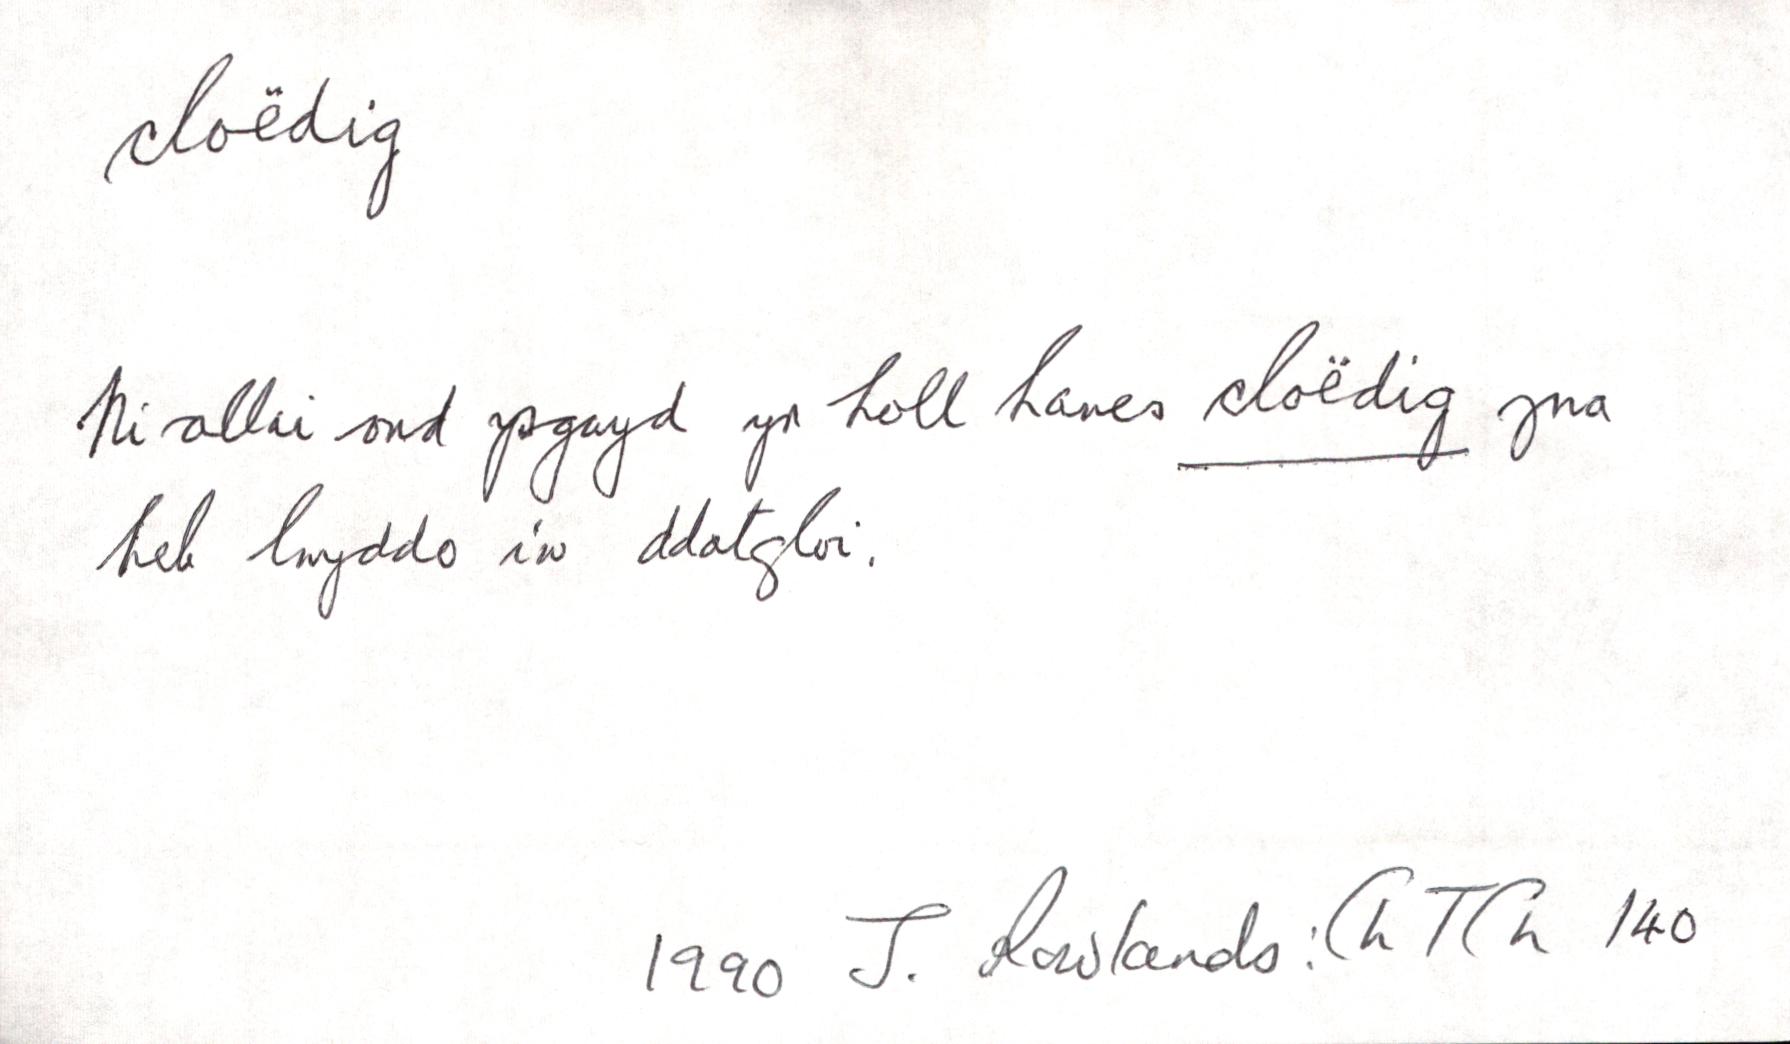 cloëdig
Ni allai ond ysgwyd yr holl hanes cloëdig yna
heb lwyddo i'w ddatgloi.
1990 J. Rowlands: ChTCh 140